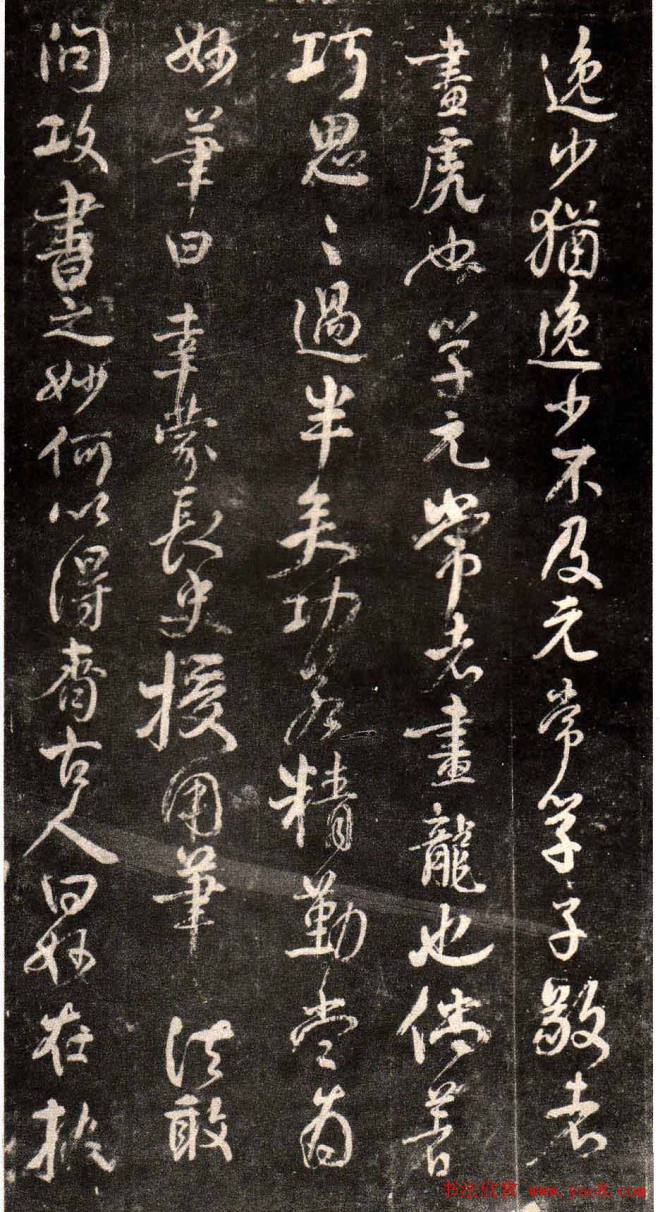 逸少猶逸少不及元常學子敬者
畫虎也學元常者畫龍也倘善
巧思思過半矣功若精勤當為
妙筆曰幸蒙長史授用筆法敢
問攻書之妙何以得齊古人曰妙在執
书法欣赏 www.yac8.com